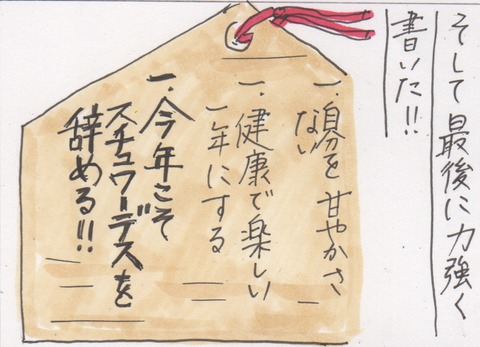 そして最後に力強く
書いた!!
一.自分を甘やかさ
ない
一.健康で楽しい
一年にする
一.今年こそ
スチュワーデスを
辞める!!